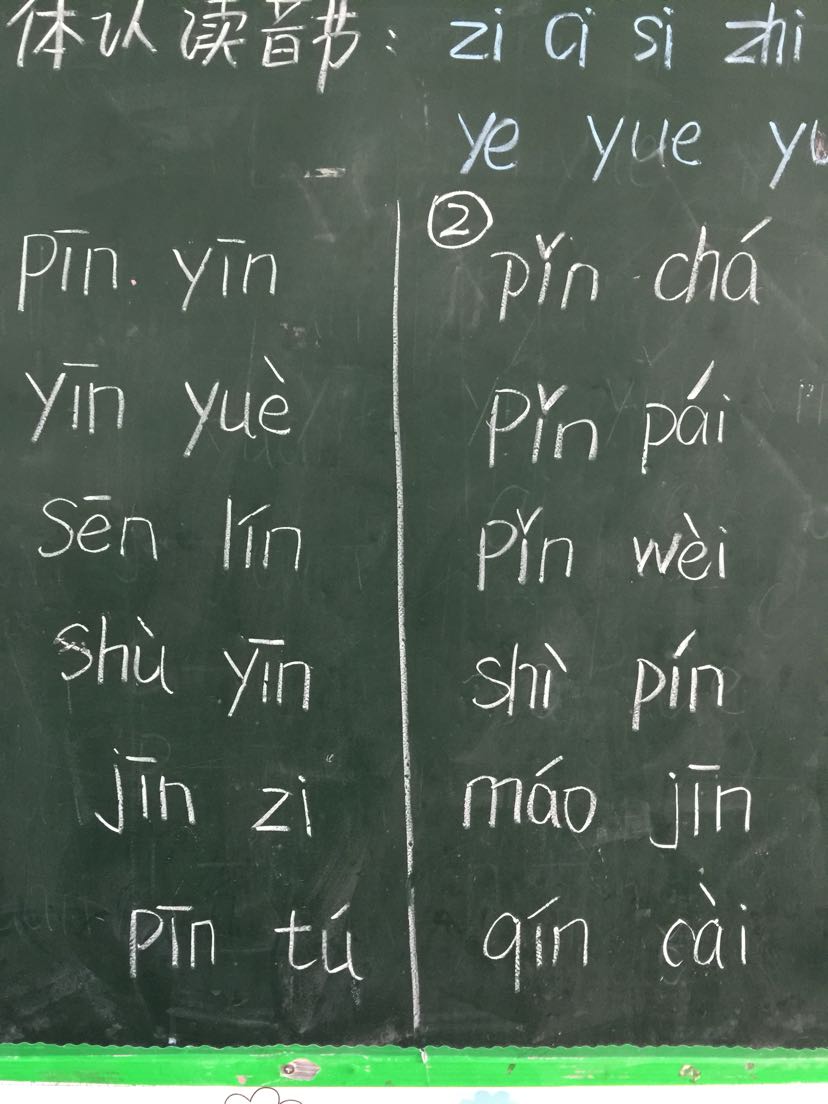 体认读音节: zi ci si zhi
ye yue yu
pīn yīn
yīn yuè
sēn lín
shù yīn
jīn zi
pīn tú
②
pǐn chá
pǐn pái
pǐn wèi
shì pín
máo jīn
qín cài